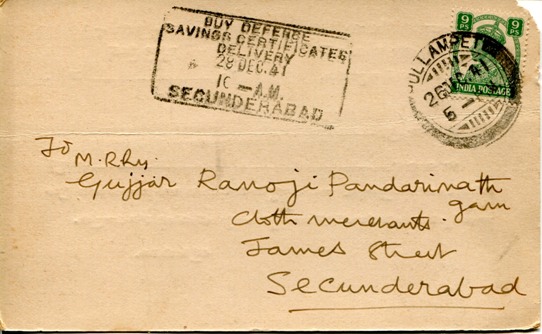 BUY DEFENSE
SAVINGS CERTIFICATES
DELIVERY
28 DEC. 41
10 — A.M.
SECUNDERABAD
9 PS 9 PS
INDIA POSTAGE
To
M.R.Ry.
Gujjar Ranoji Pandarinath
garu
Cloth merchants.
James Street
Secunderabad